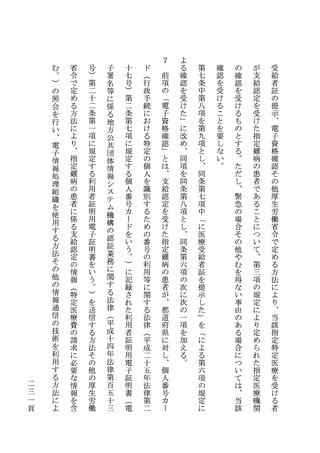 受給者証の提示、電子資格確認その他厚生労働省令で定める方法により、当該指定特定医療を受ける者
が支給認定を受けた指定難病の患者であることについて、第三項の規定により定められた指定医療機関
の確認を受けるものとする。ただし、緊急の場合その他やむを得ない事由のある場合については、当該
確認を受けることを要しない。
第七条中第八項を第九項とし、同条第七項中「に医療受給者証を提示した」を「による第六項の規定に
よる確認を受けた」に改め、同項を同条第八項とし、同条第六項の次に次の一項を加える。
7　前項の「電子資格確認」とは、支給認定を受けた指定難病の患者が、都道府県に対し、個人番号カー
ド（行政手続における特定の個人を識別するための番号の利用等に関する法律（平成二十五年法律第二
十七号）第二条第七項に規定する個人番号カードをいう。）に記録された利用者証明用電子証明書（電
子署名等に係る地方公共団体情報システム機構の認証業務に関する法律（平成十四年法律第百五十三
号）第二十二条第一項に規定する利用者証明用電子証明書をいう。）を送信する方法その他の厚生労働
省令で定める方法により、指定難病の患者に係る支給認定の情報（特定医療費の請求に必要な情報を含
む。）の照会を行い、電子情報処理組織を使用する方法その他の情報通信の技術を利用する方法によ
二三一頁